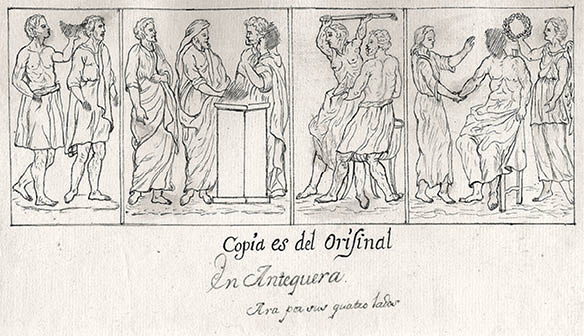 Copia es del Orisinal
En Antequera.
Ara por sus quatro lados